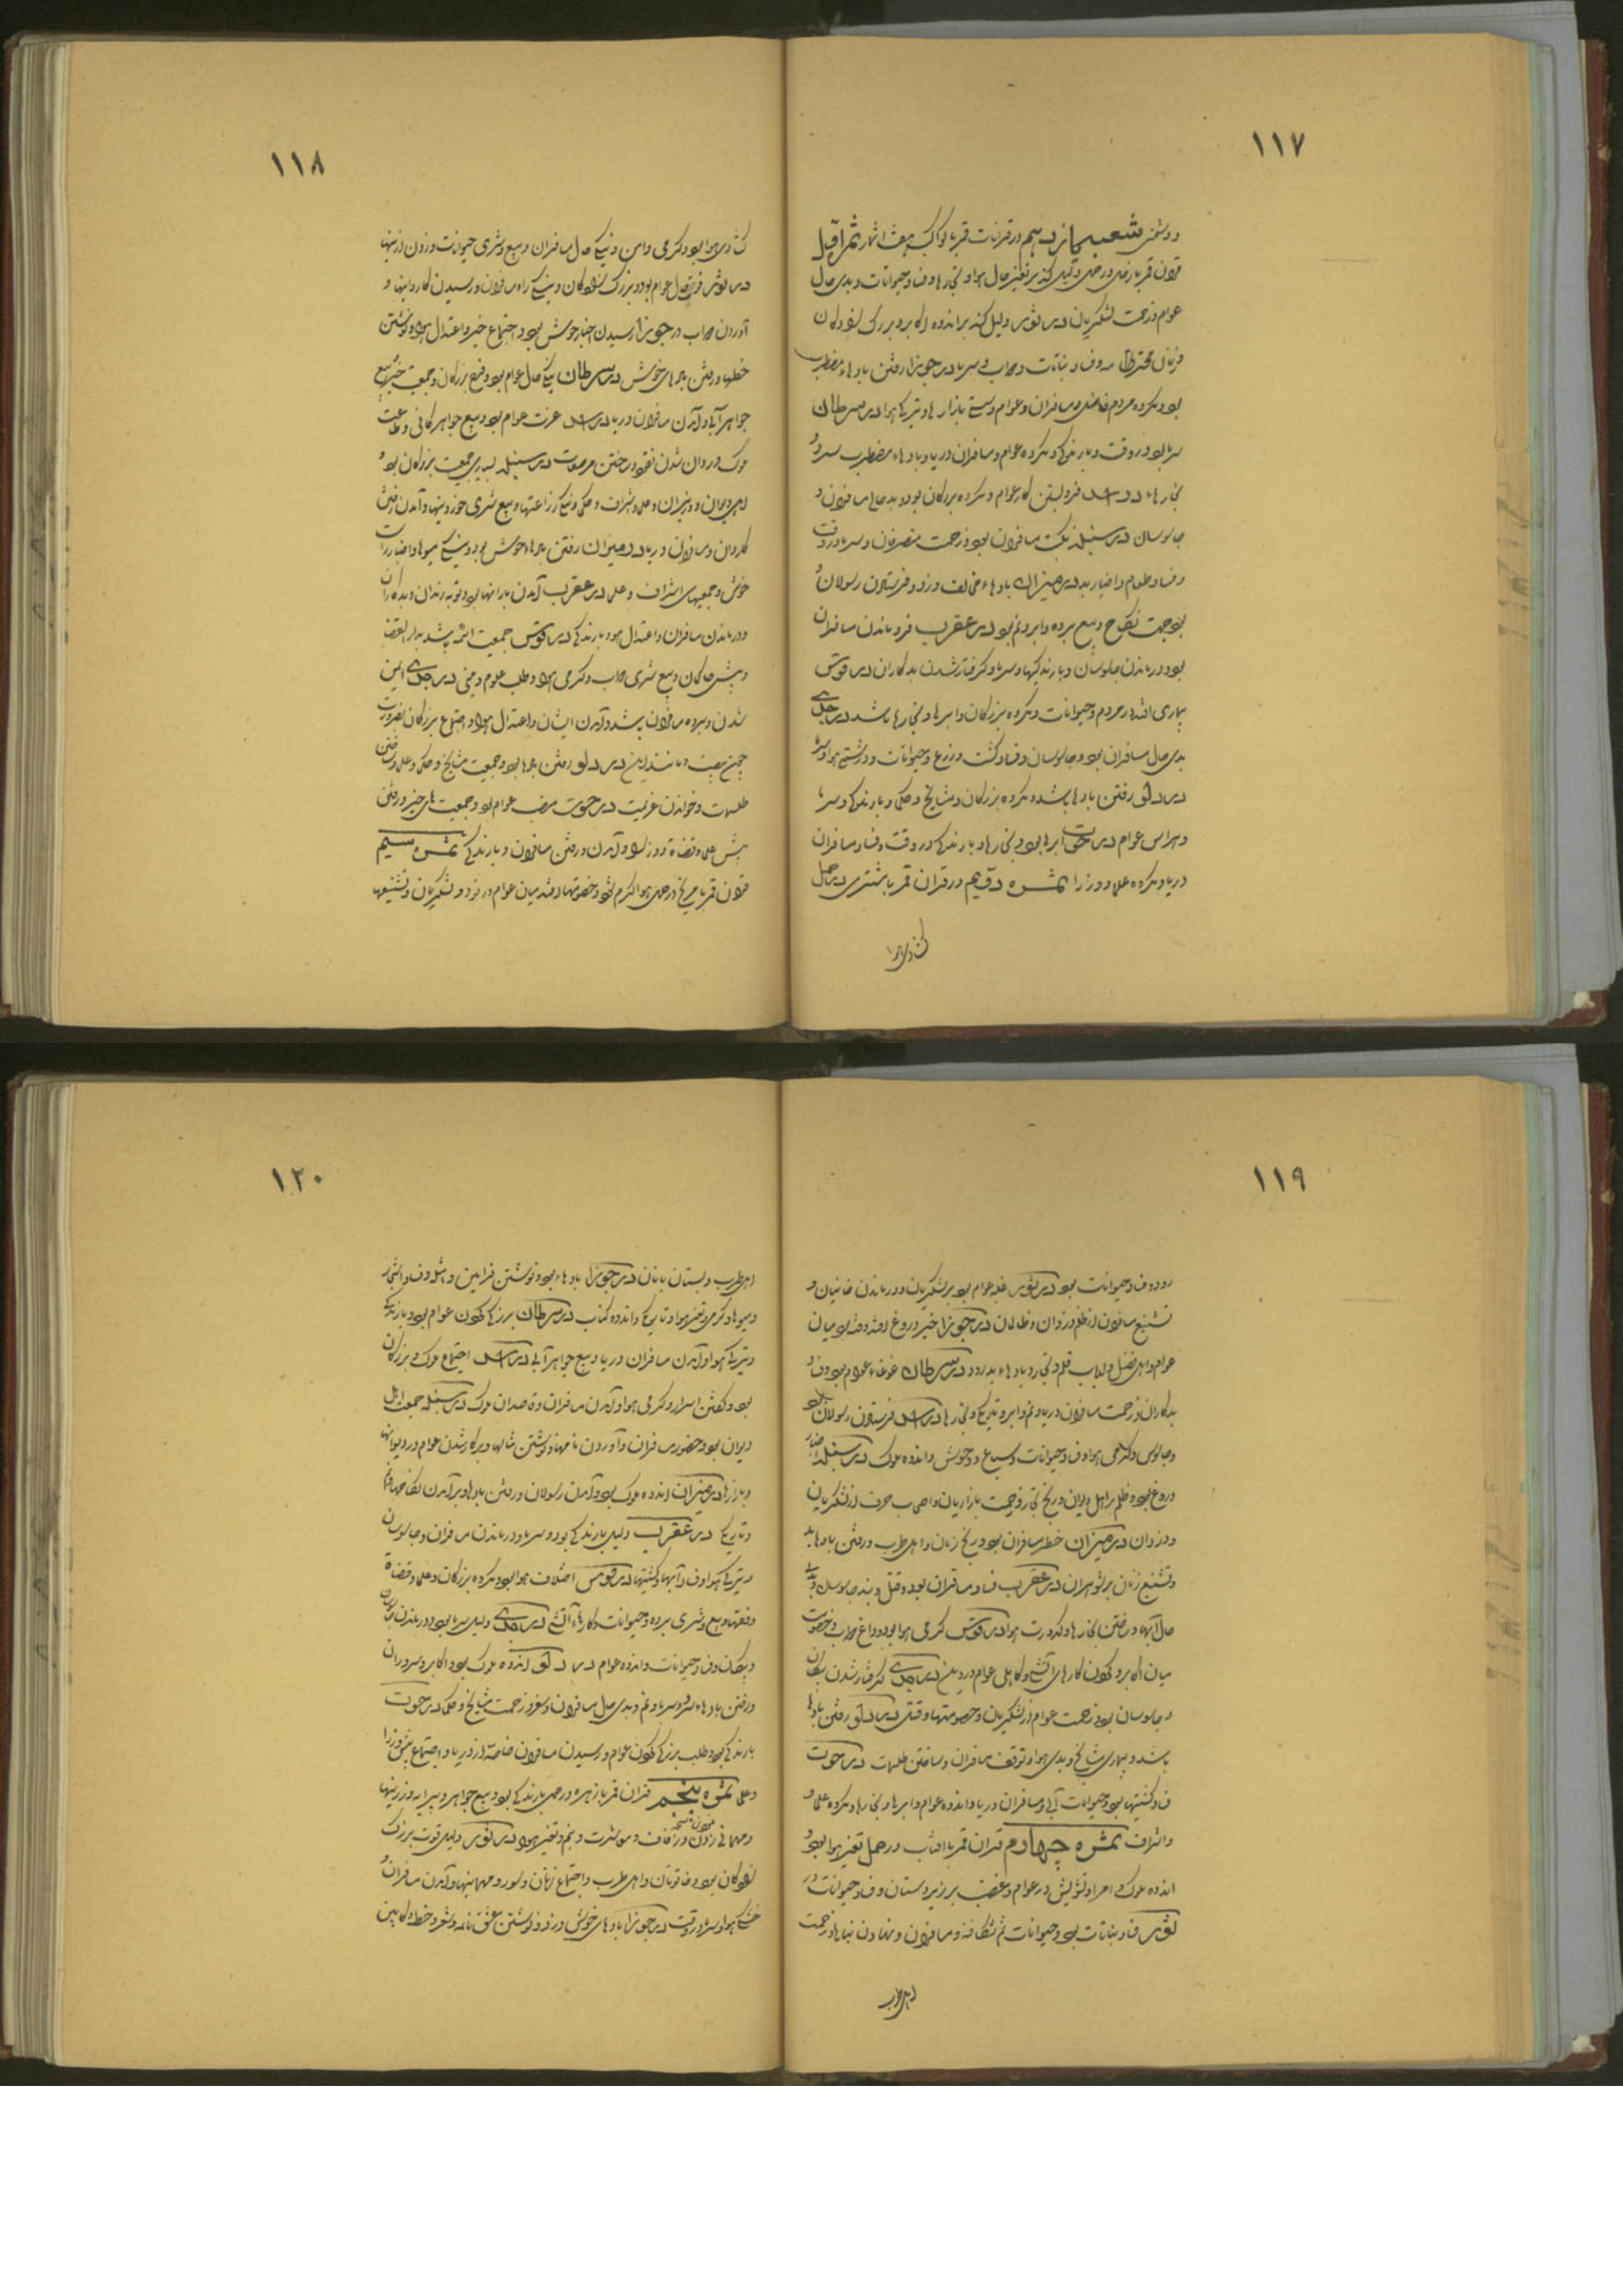 ۱۱۷
و دشمنی شعب یازدهم در قرانات قمر با کواکب هفت اثمار ثمر اول
قران قمر با زحل در حمل دلیل کند بر تغیر حال هوا و بخارها و فساد حیوانات و بدی حال
عوام و زحمت لشکریان در ثور دلیل کند بر اندوه اکابر و بزرک زادکان
و زنان محترم بود و فساد نباتات و دواب و سرما در جوزا رفتن بادهاء مضطرب
بود و مکروه مردم فاضل و مسافران و عوام و سستی بازارها و تیرکی هوا در سرطان
سرما بود در وقت و بارندکی و مکروه عوام و مسافران دریا و بادهاء مضطرب سرد و
بخارهاء در اسد فرو بستن کار عوام و مکروه بزرکان بود و بد حالی مسافران و
جاسوسان در سنبله نکبت مسافران بود و زحمت متصرفان و سرما در وقت
و فساد طعام و اخبار بد در میزان بادهاء مخالف وزد و فرستادن رسولان و
بود جهت نکاح و بیع برده و ابر و نم بود در عقرب فرو ماندن مسافران
بود و درماندن جاسوسان و بارندکیها و سرما و کرفتار شدن بدکاران در قوس
بیماری افتد در مردم و حیوانات و مکروه بزرکان و ابرها و بخارها باشد در جدی
بدی حال مسافران بود و جاسوسان و فساد کشت و زرع و حیوانات و درشتی هوا و سرما
در دلو رفتن بادها باشد و مکروه بزرکان و مشایخ و حکما و بارندکی و سرما
و هراس عوام در حوت ابرها بود و بخارها و بارندکی در وقت و فساد مسافران
دریا و مکروه علما و وزرا ثمره دویم در قران قمر با مشتری در حمل
کشادی هوا
۱۱۸
کشادی هوا بود و کرمی و امن و نیکی حال مسافران و بیع و شری حیوانات و زدن زرینها
در ثور قوت حال عوام بود و بزرک زادکان و نیکی راه مسافران و رسیدن کاروانیها و
آوردن دواب در جوزا رسیدن اخبار خوش بود و اجتماع خیر و اعتدال هوا و نوشتن
خطها و رفتن بادهای خوش در سرطان نیکی حال عوام بود و فتح بزرکان و جمعیت خیر و بیع
جواهر آبی و آمدن مسافران دریا در اسد عزت عوام بود و بیع جواهر کانی و طاعت
ملوک و روان شدن نقود و ساختن مرصعات در سنبله بسیاری جمعیت بزرکان بود و
اهل دیوان و وزیران و علما و اشراف و حکما و نیکی زراعتها و بیع و شری خوردنیها و آمدن و رفتن
کاروان و مسافران دریا در میزان رفتن بادهاء خوش بود و نیکی میوها و اخبار راست
خوش و جمعیتهای اشراف و علما در عقرب آمدن بارانها بود و توبه رندان و بدکاران
و درماندن مسافران و اعتدال هوا و بارندکی در قوس جمعیت ائمه باشد بدار القضا
و پیش حاکمان و بیع و شری دواب و کرمی هوا و طلب علوم دینی در جدی ایمن
شدن و سپردن مسافران باشد و آمدن ایشان و اعتدال هوا و اجتماع بزرکان بضرورت
چون بیعت و مانند این در دلو رفتن بادها بود و جمعیت مشایخ و حکما و علما و ساختن
طلسمات و خواندن عزیمت در حوت مرض عوام بود و جمعیت های خیر و رفتن
پیش علما و قضاة و وزرا و آمدن و رفتن مسافران و بارندکی ثمره سیم
قران قمر با مریخ در حمل هوا کرم شود و خصومتها افتد میان عوام و دزد و لشکریان و تشنیعها
۱۱۹
رود و فساد حیوانات بود در ثور غلبه عوام بود بر لشکریان و درماندن خاتنان و
تشنیع مسافران از ظلم دزدان و ظالمان در جوزا خبر دروغ افتد و فتنه بود میان
عوام و اهل فضل و ارباب قلم و تجار و بادهاء بد رود در سرطان غوغاء عوام بود و فساد
بدکاران و زحمت مسافران دریا و نم و ابر و تاریکی و بخارها در اسد فرستادن رسولان بود
و جاسوس و کرمی هوا و فساد حیوانات و سباع و وحوش و اندوه ملوک در سنبله اخبار
دروغ بود و ظلم بر اهل دیوان و رنج تجار و زحمت بازاریان و اصحاب حرف از لشکریان
و دزدان در میزان خطر مسافران بود و رنج زنان و اهل طرب و رفتن بادها بد
و تشنیع زنان بر شوهران در عقرب فساد مسافران بود و قتل و بند جاسوسان و بدی
حال آبها و ساختن بخارها و کدورت هوا در قوس کرمی هوا بود و داغ دواب و خصومت
میان اکابر و نکون کارهای آتشی و کاهلی عوام در دین در جدی کرفتار شدن بیکان
و جاسوسان بود و زحمت عوام از لشکریان و خصومتها و قتل در دلو رفتن بادها
باشد و بیماری مشایخ و بدی هوا و توقف مسافران و ساختن طلسمات در حوت
فساد کشتیها بود و حیوانات آبی و مسافران دریا و اندوه عوام و ابرها و بخارها و مکروه علما و
و اشراف ثمره چهارم قران قمر با افتاب در حمل تغیر هوا بود و
اندوه ملوک و امرا و تشویش در عوام و غضب بر زیردستان و فساد حیوانات در
ثور فساد نباتات بود و حیوانات و مسافران و نهادن بناها و زحمت
اهل طرب
۱۲۰
اهل طرب و بستان بانان در جوزا بادهاء بود و نوشتن فرامین و امثله و فساد اشجار
و میوها و کرمی و تغیر هوا و تاریکی و اندوه کتاب در سرطان بزرکی نکون عوام بود و بارندکی
و تیرکی هوا و آمدن مسافران دریا و بیع جواهر آبی در اسد اجتماع ملوک و بزرکان
بود و کفتن اسرار و کرمی هوا و آمدن مسافران و قاصدان ملوک در سنبله جمعیت اهل
دیوان بود و حضور مسافران و آوردن نامها و نوشتن مثالها و برکار شدن عوام در دیوانها
و بازارها در میزان اندوه ملوک بود و آمدن رسولان و رفتن بادها و برآمدن نکاحها و نم
و تاریکی در عقرب دلیل بارندکی بود و سرما و درماندن مسافران و جاسوسان
و تیرکی هوا و فساد آبها و کشتیها در قوس اختلاف هوا بود و مکروه بزرکان و علما و قضاة
و فقها و بیع و شری برده و حیوانات و کارهاء آتشی در جدی دلیل سرما بود و درماندن جاسوسان
و پیکان و فساد حیوانات و اندوه عوام در دلو اندوه ملوک بود و اکابر و سروران
و رفتن بادهاء سرد و سرما و نم و بدی حال مسافران و سفر و زحمت مشایخ و حکما در حوت
بارندکی بود و طلب بزرکی نکون عوام و رسیدن مسافران خاصه از دریا و اجتماع پیش وزرا
و علما ثمره پنجم قران قمر با زهره در حمل بارندکی بود و بیع جواهر و پیرایه و زرینها
و مهمانی زنان و زفاف و معاشرت و نم و تغیر هوا در ثور دلیل قوت بزرک
زادکان بود و خاتونان و اهل طرب و اجتماع زنان و سور و مهمانیها و آمدن مسافران و
خنکی هوا و سرما در وقت در جوزا بادهای خوش وزد و نوشتن عشق نامه و شعر و خطهاء کابین